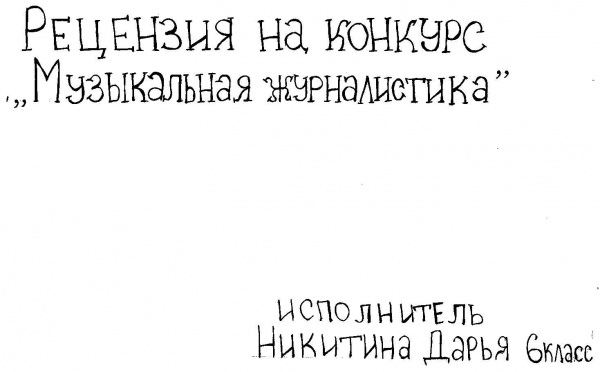 Рецензия на конкурс
„Музыкальная журналистика”
исполнитель
Никитина Дарья 6класс